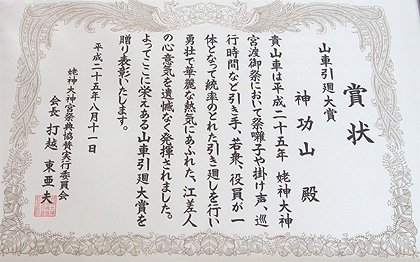 賞状
山車引廻大賞
神功山 殿
貴山車は平成二十五年 姥神大神
宮渡御祭において祭囃子や掛け声、巡
行時間など引き手、若衆、役員が一
体となって統率のとれた引き廻しを行い
勇壮で華麗な熱気にあふれた、江差人
の心意気を遺憾なく発揮されました。
よってここに栄えある山車引廻大賞を
贈り表彰いたします。
平成二十五年八月十一日
姥神大神宮祭典協賛実行委員会
会長 打越 東亜夫